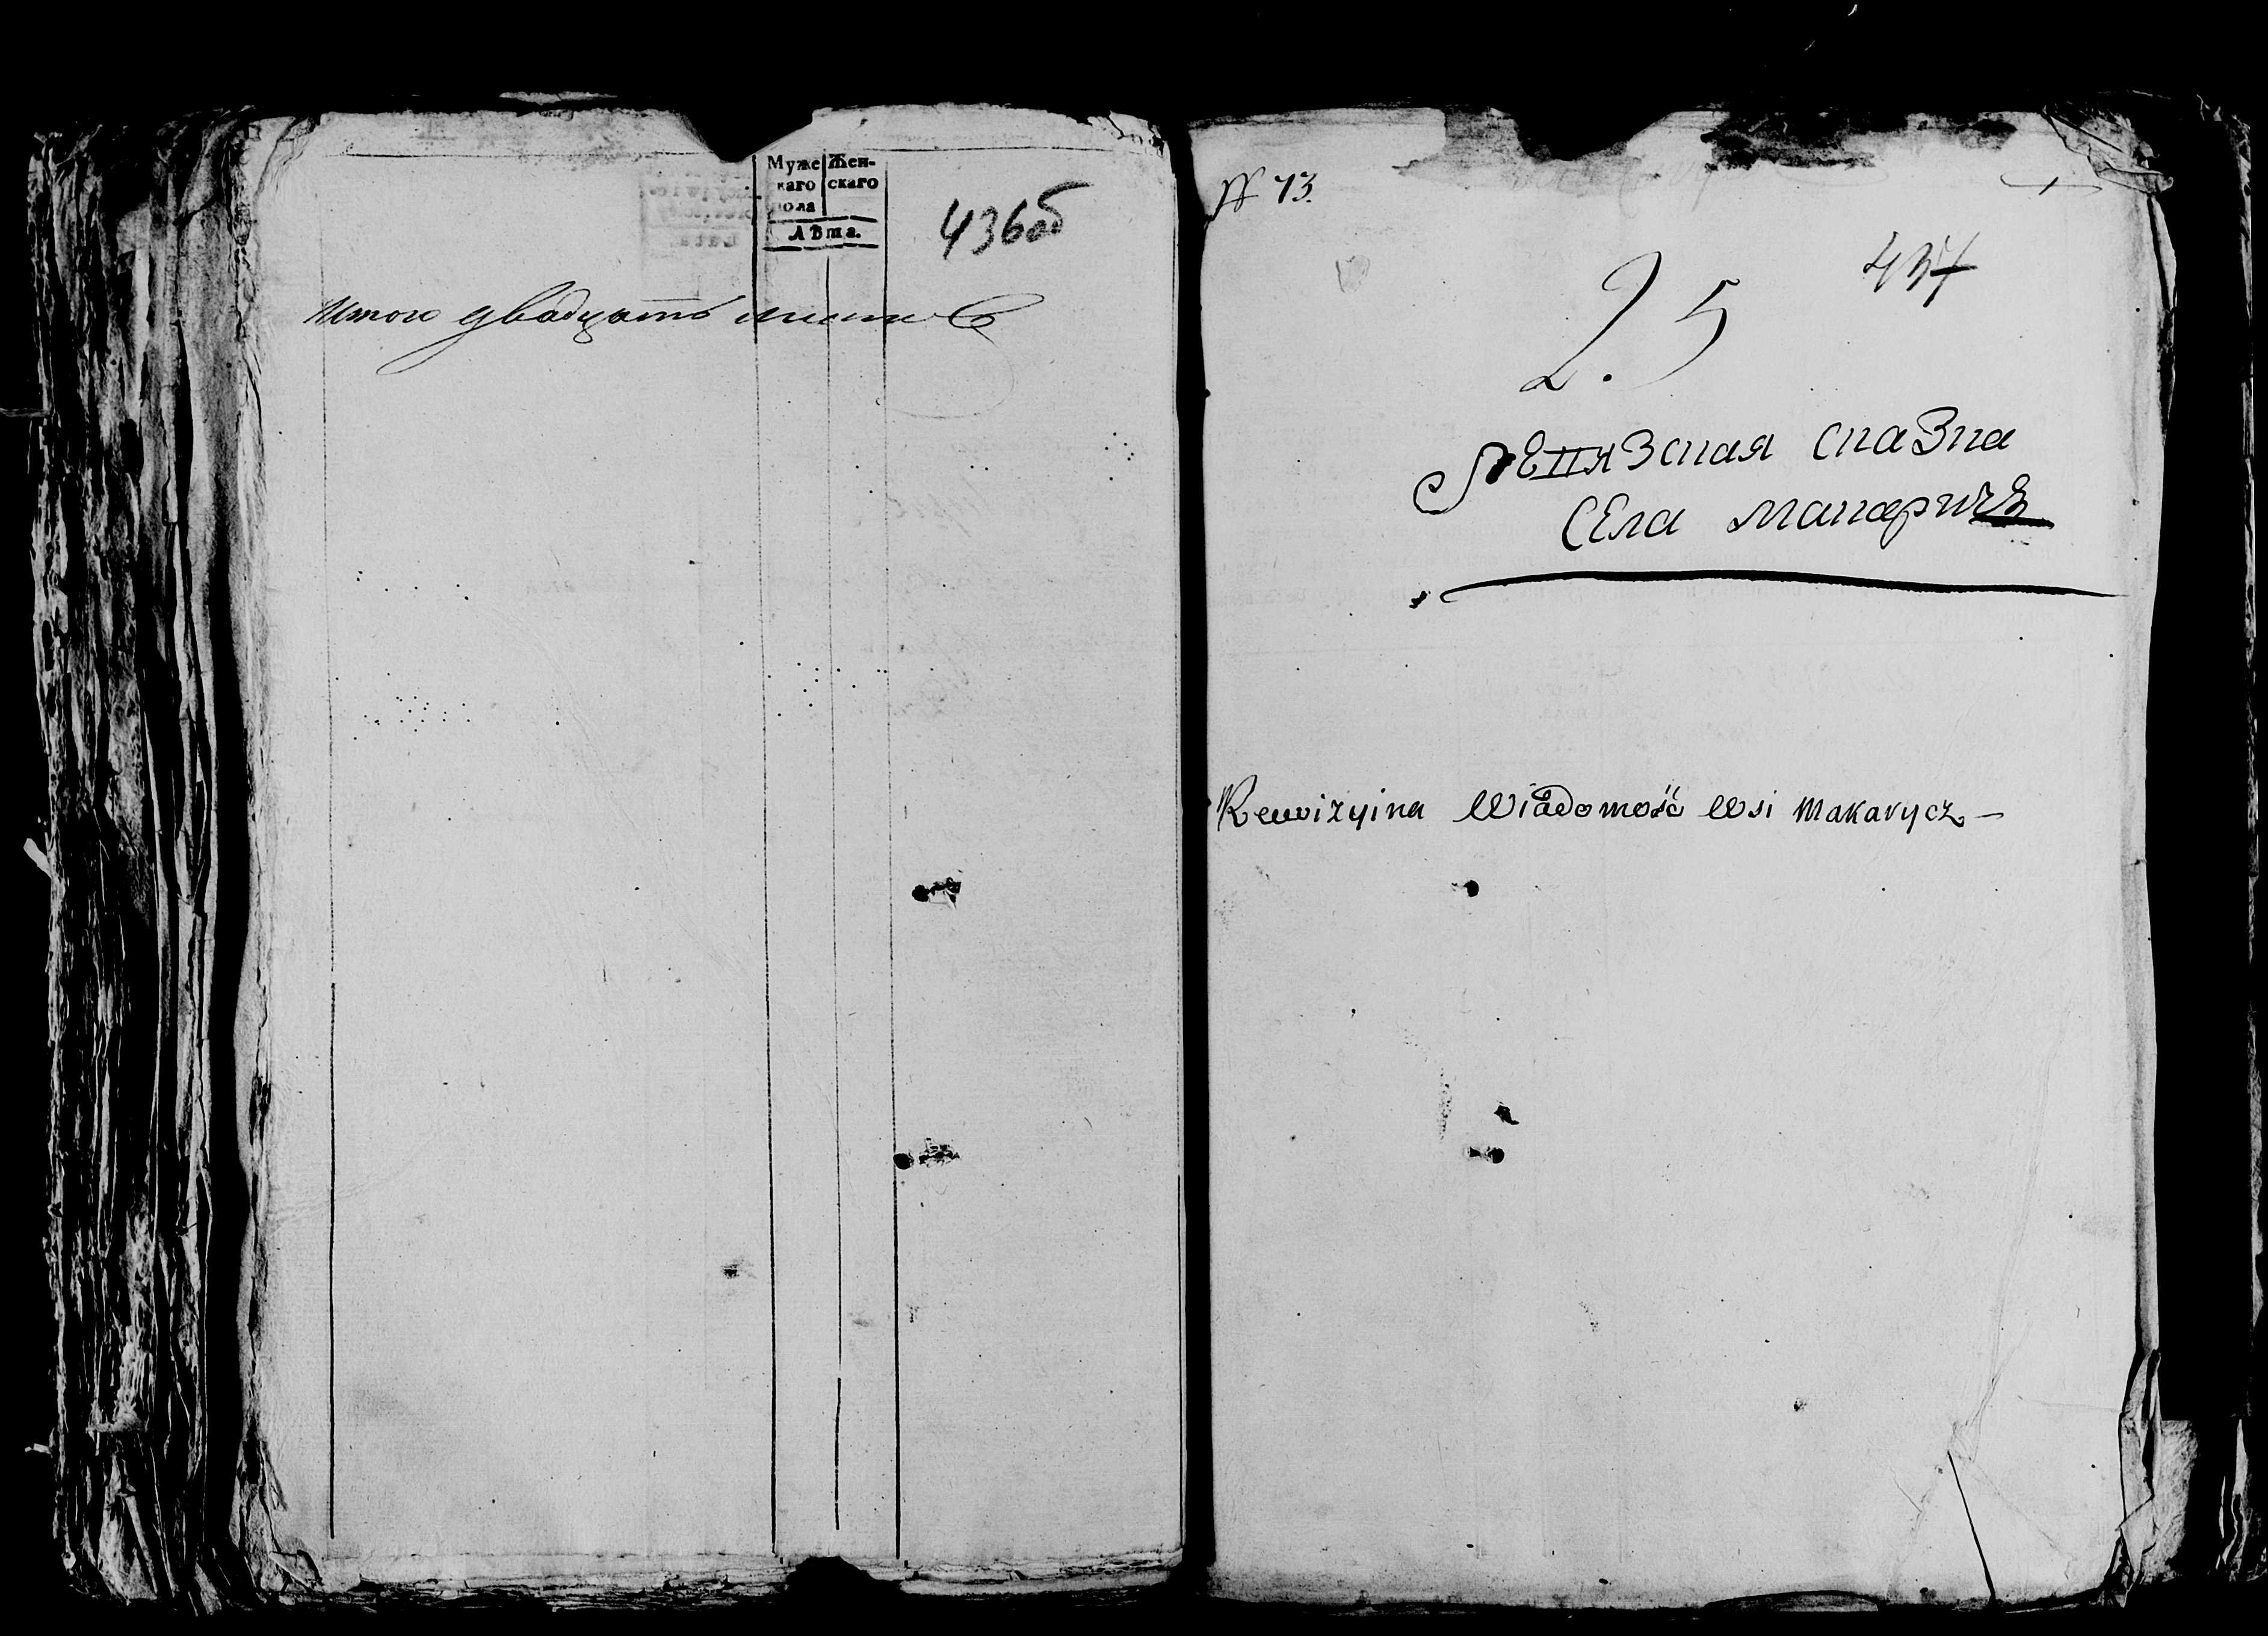 Муже Жен-
каго скаго
пола
Лѣта.
436об
Итого двадцать листов
№ 73.
437
25
Ревизская сказка
Села Макаричъ
Rewizyina Wiadomość Wsi Makarycz